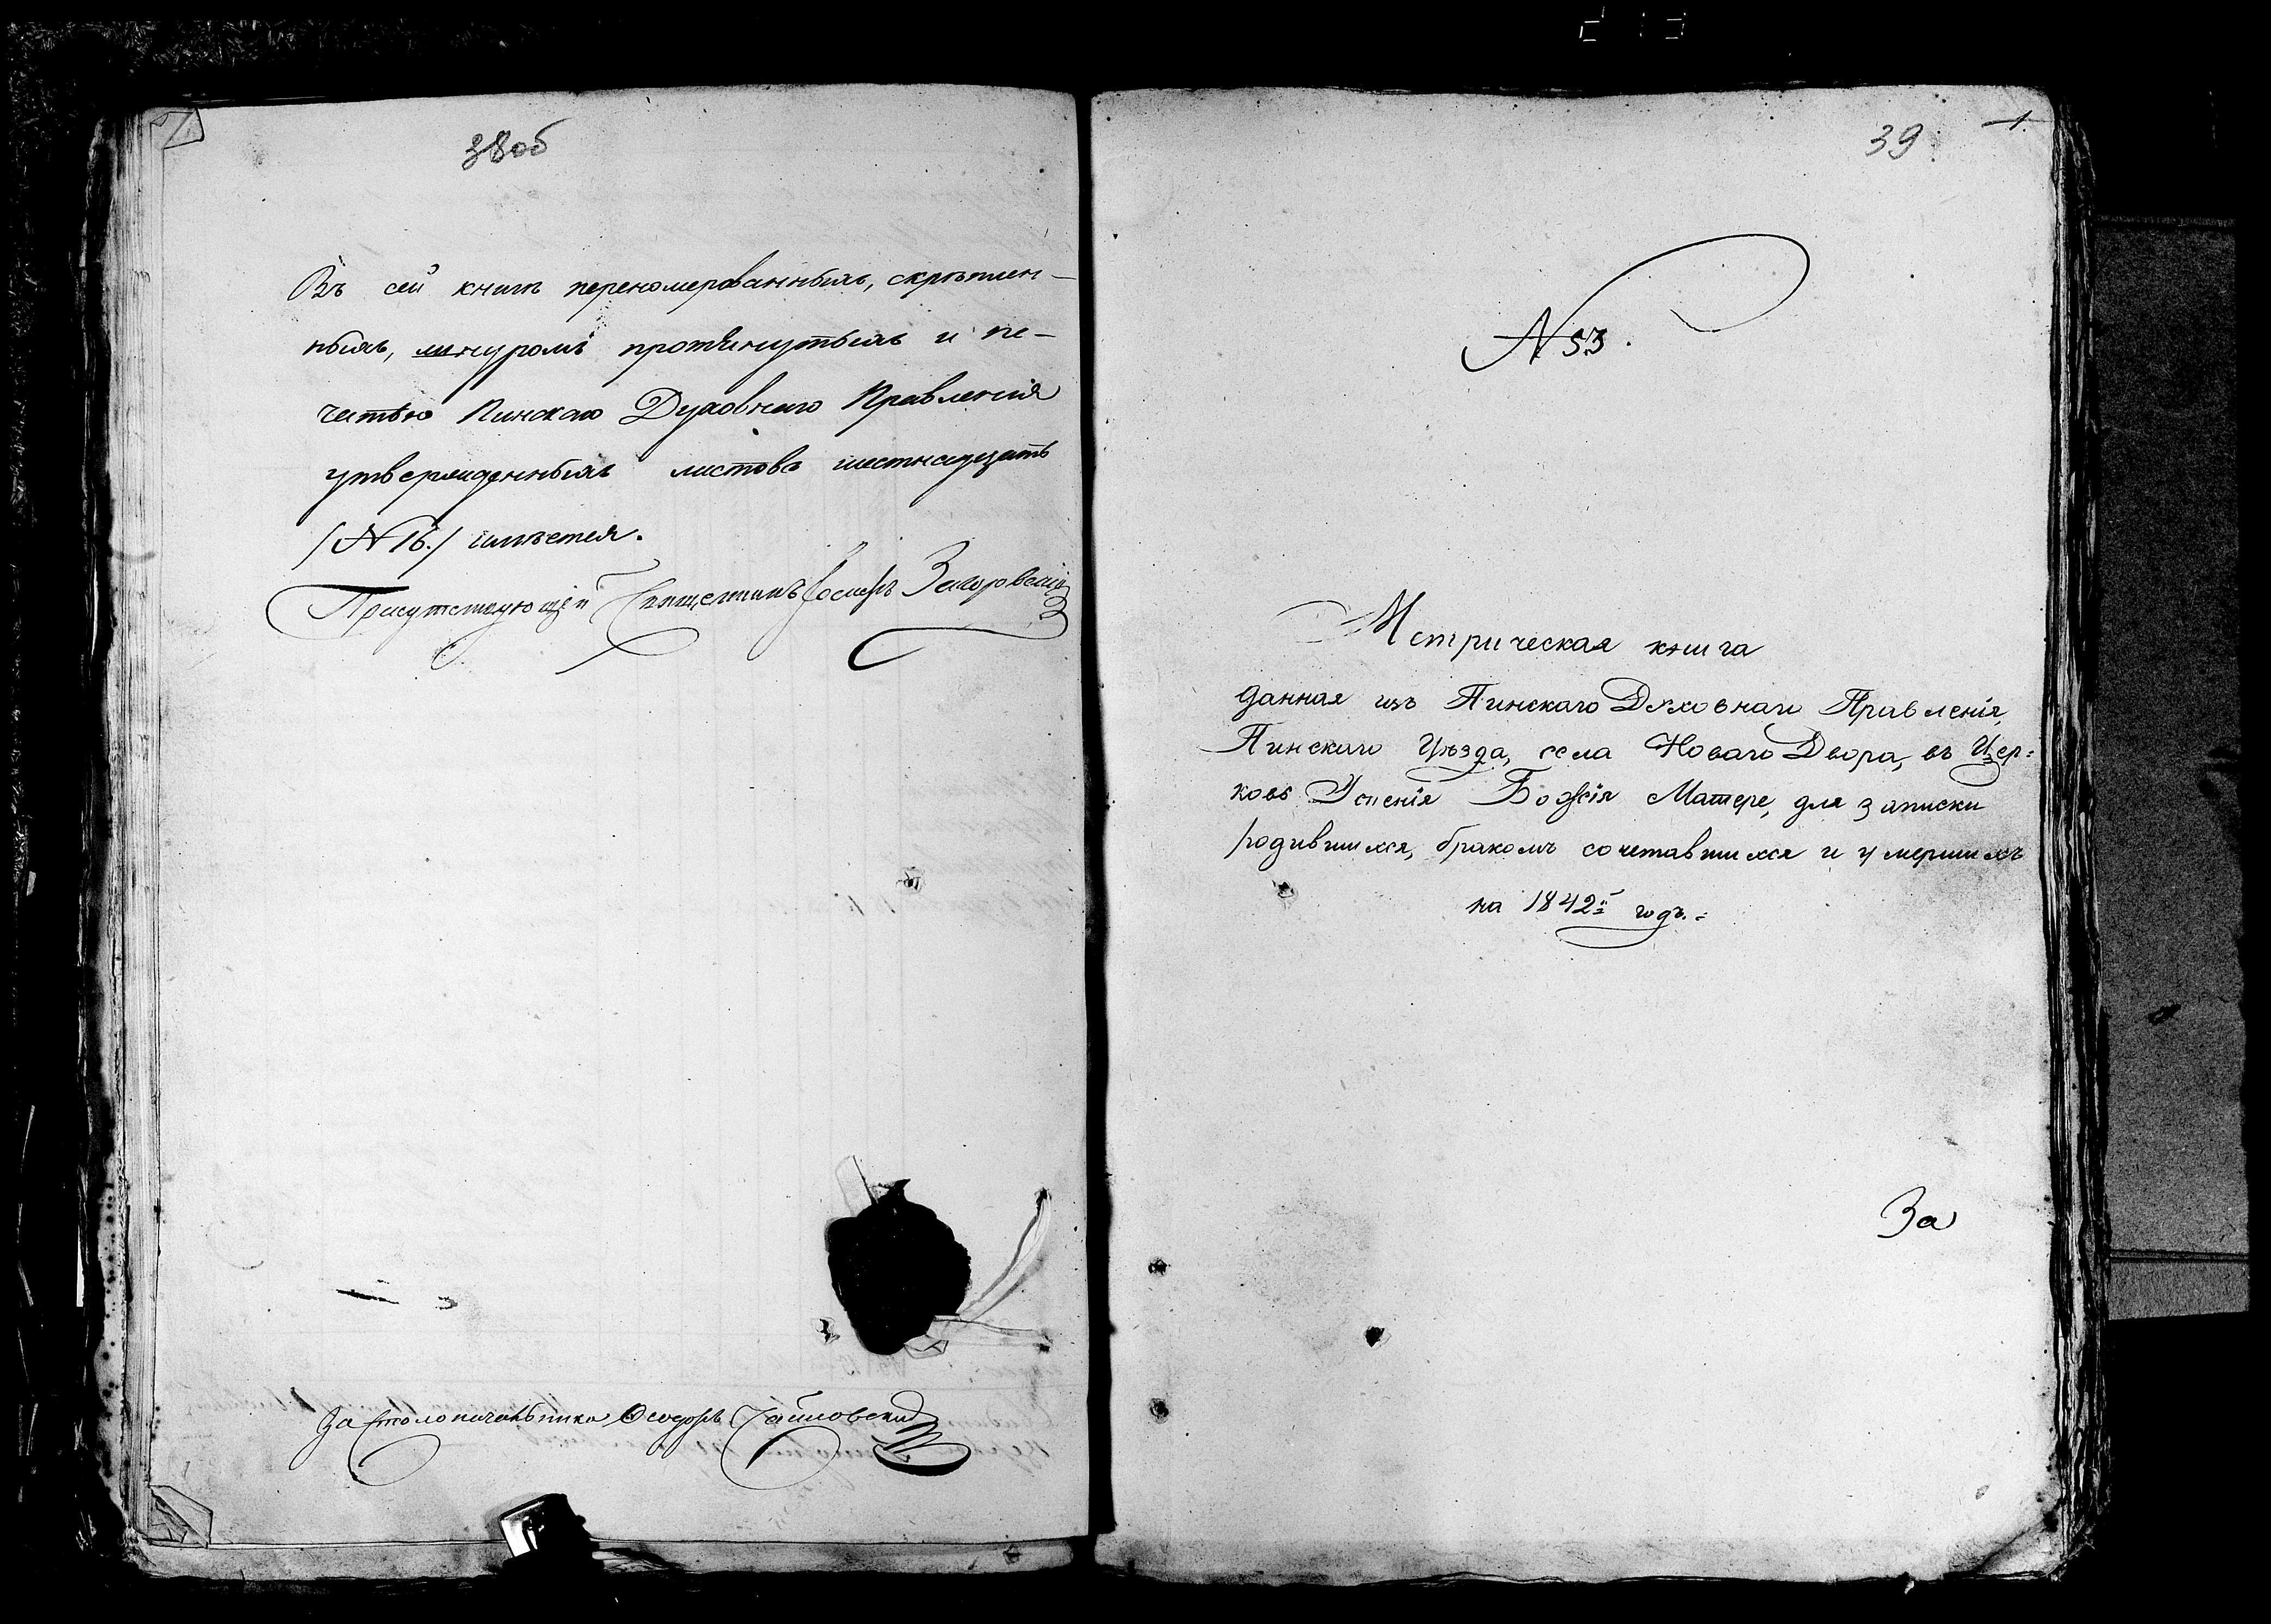 38 об
Въ сей книгѣ переномерованныхъ, скрѣплен-
ныхъ, шнуромъ протянутыхъ и пе-
чатью Пинскаго Духовнаго Правленія
утвержденныхъ листовъ шестнадцать
/№ 16./ имѣется.
Присутствующій Священникъ Іосифъ
За Столоначальника Ѳеодоръ
39 1.
№ 53.
Метрическая книга
данная изъ Пинскаго Духовнаго Правленія,
Пинскаго Уѣзда, села Новаго Двора, въ Цер=
ковь Успенія Божія Матере, для записки
родившихся, бракомъ сочетавшихся и умершихъ
на 1842й годъ.=
За